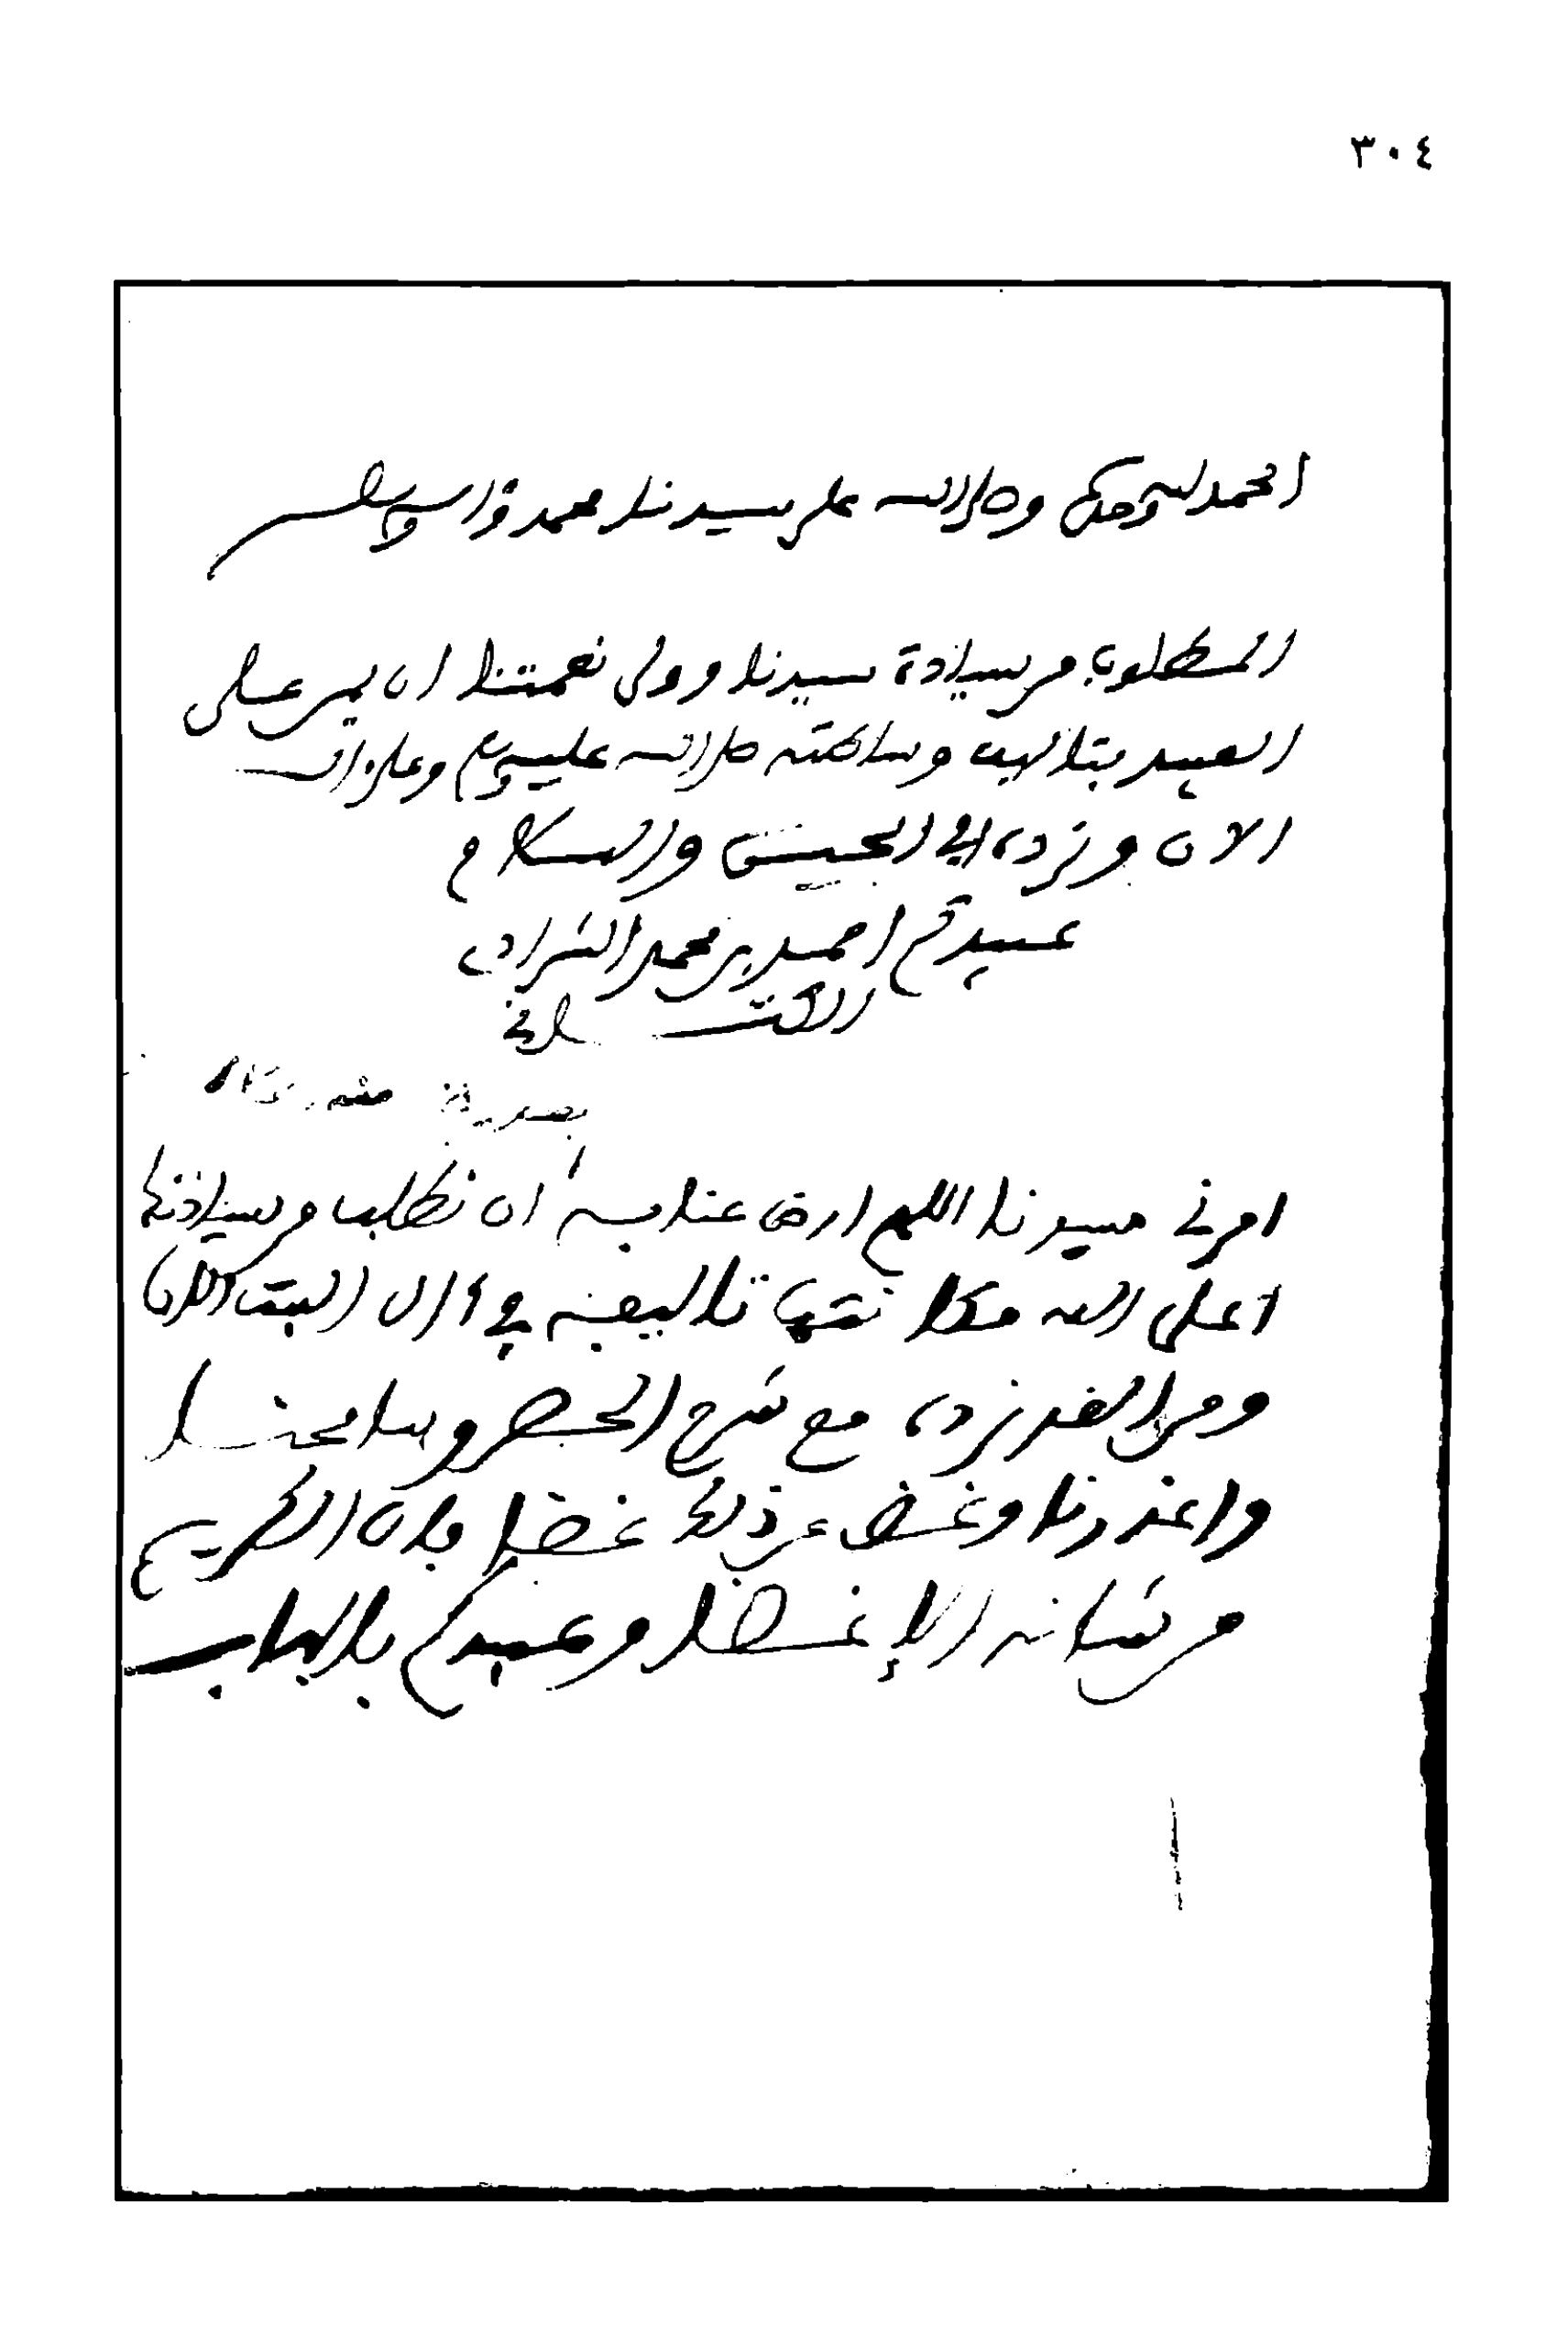 ٣٠٤
الحمد لله وحده وصلى الله على سيدنا محمد وآله وسلم
المطلوب من سيادة سيدنا وولي نعمتنا ان يمن على
العبد بتآليف وسالته صلى الله عليه وسلم وعلى آله
الان ونرده الى الحبس والسلام
عبيدكم احمد بن محمد الشرادي
امرني سيدنا اللهم ارض عنا به أن نطلب من سيادتنا
أعلى الله مكانتها تآليفه في آل البيت الان
ومن الغد نرده مع شرح الحصن وسامحنا
واعذرنا وغض عن ذلك غضا فان الكريم
من شانه الإغضا وعبيدكم بالباب